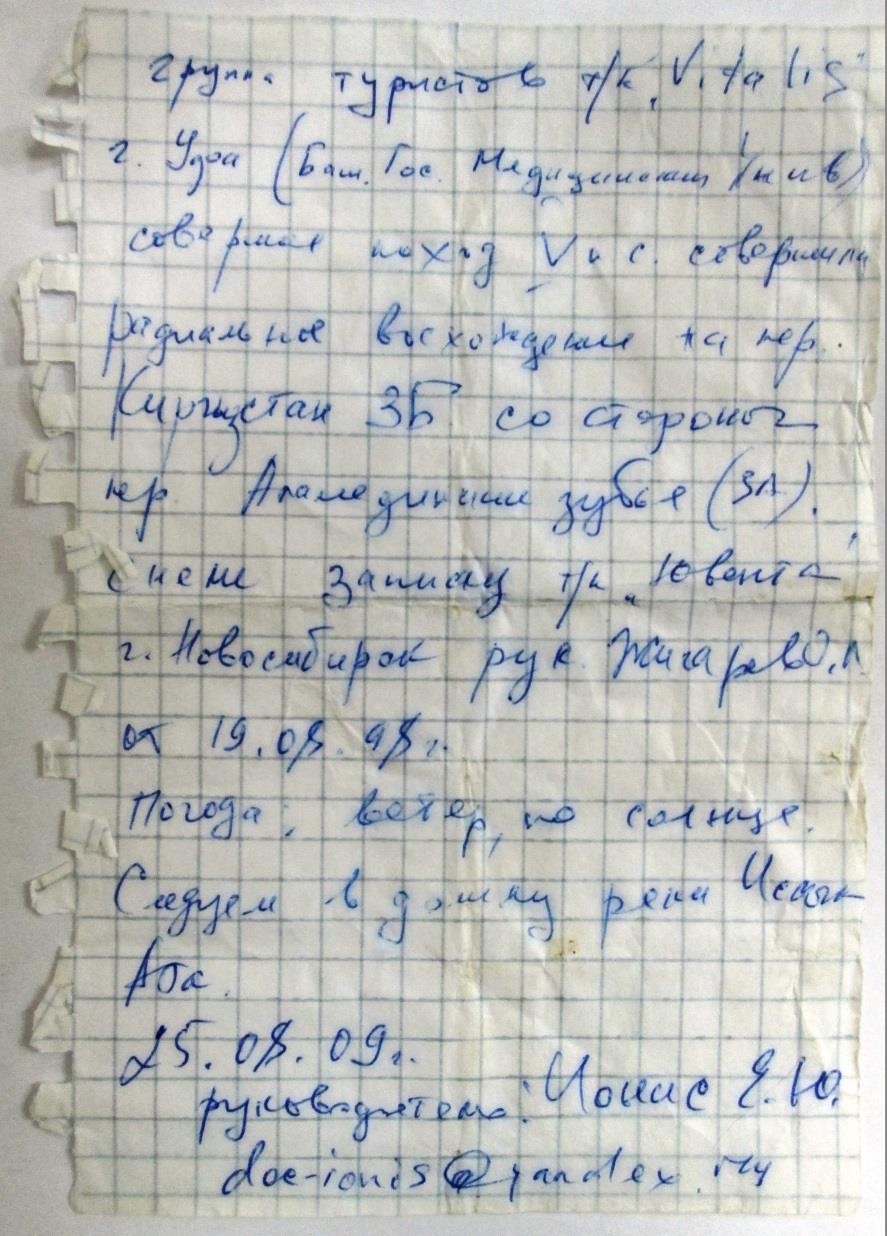 Группа туристов т/к „Vitalis"
г. Уфа (Баш. Гос. Медицинский Унив)
совершая поход V к с. совершили
радиальное восхождение на пер.
Кыргызстан 3Б со стороны
пер. Аламединские зубья (3А).
Сняли записку т/к „Ювента"
г. Новосибирск рук. Жигарев О.Л
от 19.08.98г.
Погода: ветер, но солнце.
Следуем в долину реки Иссык
Ата.
25.08.09г.
руководитель: Ионис Е.Ю.
doc-ionis@yandex.ru